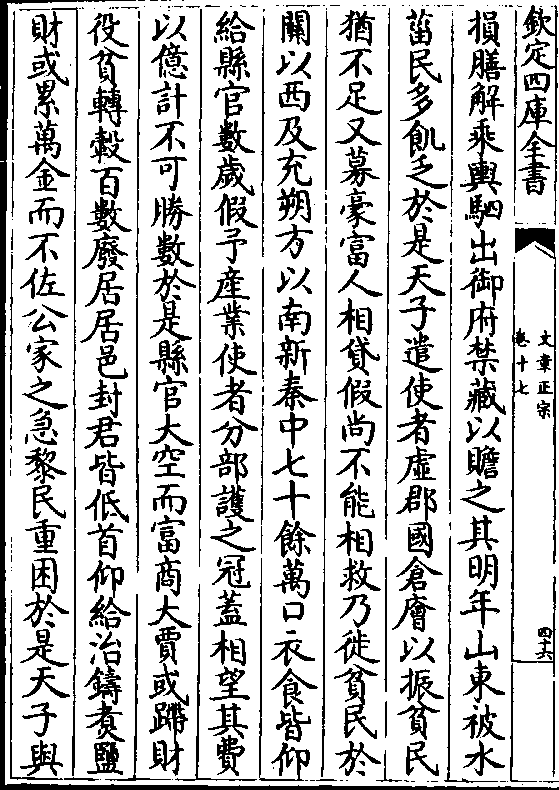 欽定四庫全書
文章正宗
卷十七
四十六
損膳解乘輿駟出御府禁藏以贍之其明年山東被水
菑民多飢乏於是天子遣使者虛郡國倉廥以振貧民
猶不足又募豪富人相貸假尚不能相救乃徙貧民於
關以西及充朔方以南新秦中七十餘萬口衣食皆仰
給縣官數歲假予產業使者分部護之冠蓋相望其費
以億計不可勝數於是縣官大空而富商大賈或蹛財
役貧轉轂百數廢居居邑封君皆低首仰給冶鑄煑鹽
財或累萬金而不佐公家之急黎民重困於是天子與